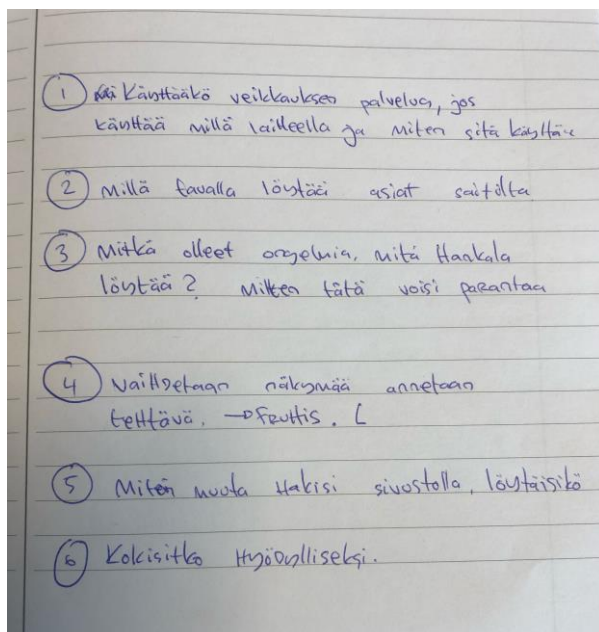 ① Käyttääkö veikkauksen palvelua, jos
käyttää millä laitteella ja miten sitä käyttää
② Millä tavalla löytää asiat saitilta
③ Mitkä olleet ongelmia, mitä Hankala
löytää? Miten tätä voisi parantaa
④ Vaihdetaan näkymää annetaan
tehtävä. → Feuttis. [
⑤ Miten muuta Hakisi sivustolla, löytäisikö
⑥ Kokisitko Hyödylliseksi.